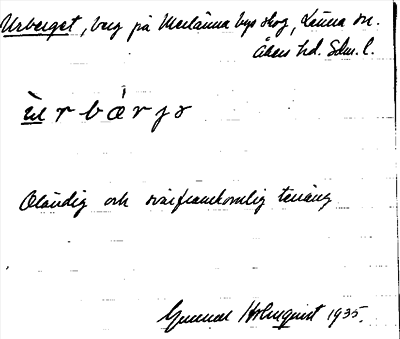 Urberget, berg på Merlänna bys skog, Länna sn.
Åkers hd. Sdm. l.
Oländig och svårframkomlig terräng
Gunnar Holmquist 1935.